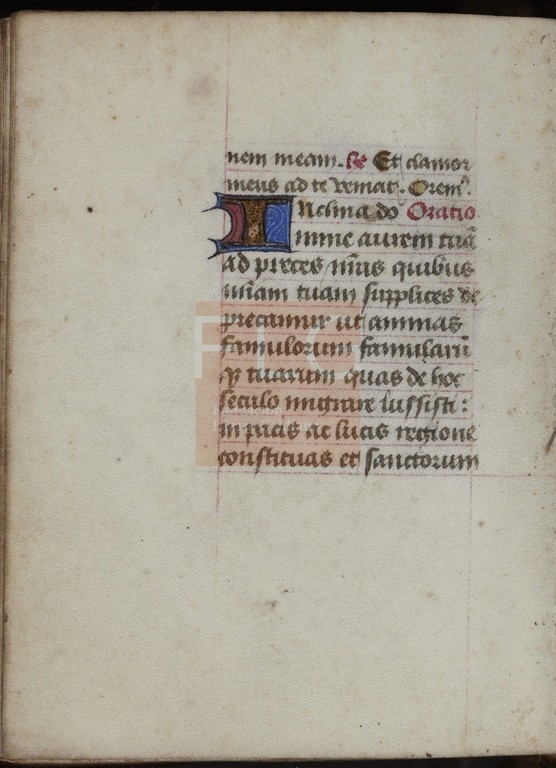 nem meam. R Et clamor
meus ad te veniat. Orem⁹.
INclina do Oratio
mine aurem tuā
ad preces nr̄as quibus
mīam tuam supplices de
precamur ut animas
famulorum famularū
q̄ tuarum quas de hoc
seculo migrare iussisti :
in pacis ac lucis regione
constituas et sanctorum